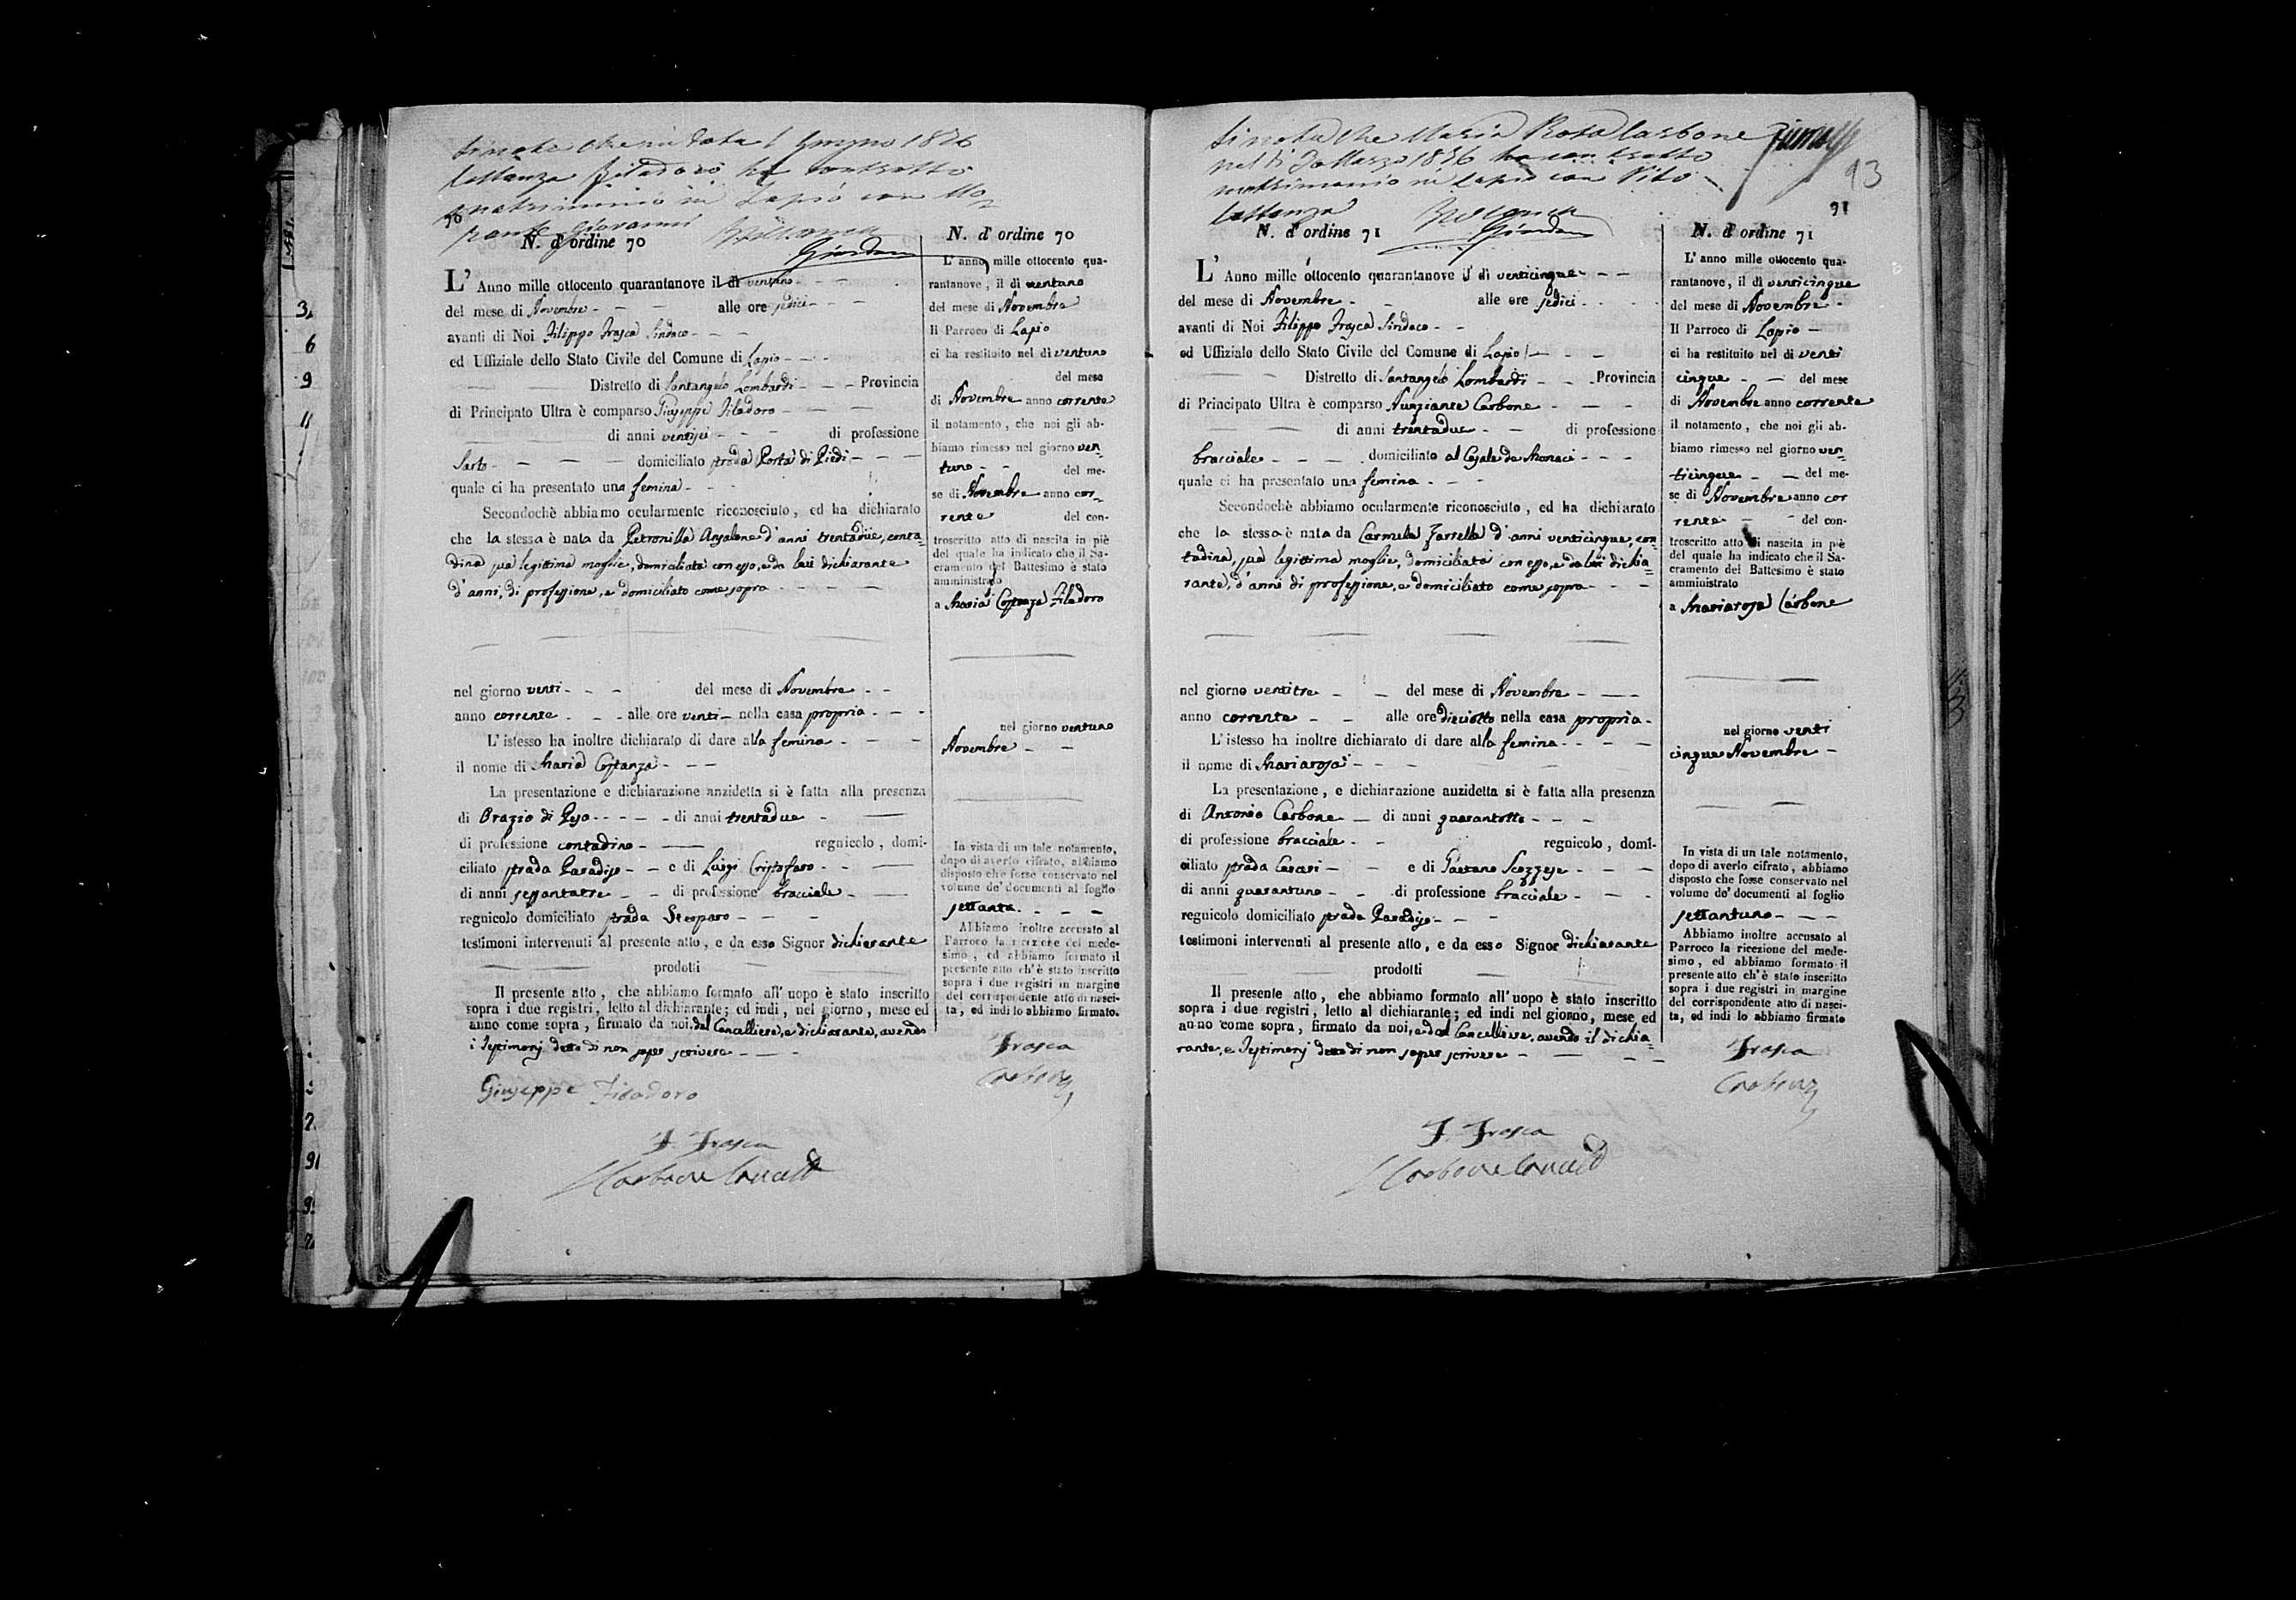 Si nota che in data 1 Giugno 1876
Costanza Filadoro ha contratto
matrimonio in Lapio con Mo-
rante Giovanni
Giordano
70
N. d'ordine 70
L' Anno mille ottocento quarantanove il dì ventuno
del mese di Novembre alle ore sedici
avanti di Noi Filippo Frasca Sindaco
ed Uffiziale dello Stato Civile del Comune di Lapio
Distretto di Santangelo Lombardi Provincia
di Principato Ultra è comparso Giuseppe Filadoro
di anni ventisei di professione
Sarto domiciliato strada Porta di Piedi
quale ci ha presentato una femina
Secondochè abbiamo ocularmente riconosciuto, ed ha dichiarato
che la stessa è nata da Petronilla Anzalone d'anni trentadue, conta-
dina sua legittima moglie, domiciliata con esso, e da lui dichiarante
d'anni, di professione, e domiciliato come sopra
nel giorno venti del mese di Novembre
anno corrente alle ore venti nella casa propria
L'istesso ha inoltre dichiarato di dare alla femina
il nome di Maria Costanza
La presentazione e dichiarazione anzidetta si è fatta alla presenza
di Orazio di Peso di anni trentadue
di professione contadino regnicolo, domi-
ciliato strada Paradiso e di Luigi Cristofaro
di anni sessantatre di professione bracciale
regnicolo domiciliato strada
testimoni intervenuti al presente atto, e da esso Signor dichiarante
prodotti
Il presente atto, che abbiamo formato all'uopo è stato inscritto
sopra i due registri, letto al dichiarante; ed indi, nel giorno, mese ed
anno come sopra, firmato da noi, dal Cancelliere, e dichiarante, avendo
i Testimonj detto di non saper scrivere
Giuseppe Filadoro
F. Frasca
Carbone
N. d'ordine 70
L' anno mille ottocento qua-
rantanove, il dì ventuno
del mese di Novembre
Il Parroco di Lapio
ci ha restituito nel dì ventuno
del mese
di Novembre anno corrente
il notamento, che noi gli ab-
biamo rimesso nel giorno ven-
tuno del me-
se di Novembre anno cor-
rente del con-
troscritto atto di nascita in piè
del quale ha indicato che il Sa-
cramento del Battesimo è stato
amministrato
a Maria Costanza Filadoro
nel giorno ventuno
Novembre
In vista di un tale notamento,
dopo di averlo cifrato, abbiamo
disposto che fosse conservato nel
volume de' documenti al foglio
settanta
Abbiamo inoltre accusato al
Parroco la ricezione del mede-
simo, ed abbiamo formato il
presente atto ch'è stato inscritto
sopra i due registri in margine
del corrispondente atto di nasci-
ta, ed indi lo abbiamo firmato.
Frasca
Si nota che Maria Rosa Carbone
nel dì 30 Marzo 1876 ha contratto
matrimonio in Lapio con Vito
Costanza
Giordano
93
91
N. d'ordine 71
L' Anno mille ottocento quarantanove il dì venticinque
del mese di Novembre alle ore sedici
avanti di Noi Filippo Frasca Sindaco
ed Uffiziale dello Stato Civile del Comune di Lapio
Distretto di Santangelo Lombardi Provincia
di Principato Ultra è comparso Nunziante Carbone
di anni trentadue di professione
bracciale domiciliato al Casale de Monaci
quale ci ha presentato una femina
Secondochè abbiamo ocularmente riconosciuto, ed ha dichiarato
che la stessa è nata da Carmela Zarrella d'anni venticinque, con-
tadina, sua legittima moglie, domiciliata con esso, e da lui dichia-
rante, d'anni di professione, e domiciliato come sopra
nel giorno ventitre del mese di Novembre
anno corrente alle ore dieciotto nella casa propria
L'istesso ha inoltre dichiarato di dare alla femina
il nome di Mariarosa
La presentazione, e dichiarazione anzidetta si è fatta alla presenza
di Antonio Carbone di anni quarantotto
di professione bracciale regnicolo, domi-
ciliato strada e di Gaetano Scozzese
di anni quarantuno di professione bracciale
regnicolo domiciliato strada Paradiso
testimoni intervenuti al presente atto, e da esso Signor dichiarante
prodotti
Il presente atto, che abbiamo formato all'uopo è stato inscritto
sopra i due registri, letto al dichiarante; ed indi nel giorno, mese ed
anno come sopra, firmato da noi, e dal Cancelliere, avendo il dichia-
rante, e Testimonj detto di non saper scrivere
F. Frasca
Carbone
N. d'ordine 71
L' anno mille ottocento qua-
rantanove, il dì venticinque
del mese di Novembre
Il Parroco di Lapio
ci ha restituito nel dì venti
cinque del mese
di Novembre anno corrente
il notamento, che noi gli ab-
biamo rimesso nel giorno ven-
ticinque del me-
se di Novembre anno cor
rente del con-
troscritto atto di nascita in piè
del quale ha indicato che il Sa-
cramento del Battesimo è stato
amministrato
a Mariarosa Carbone
nel giorno venti
cinque Novembre
In vista di un tale notamento,
dopo di averlo cifrato, abbiamo
disposto che fosse conservato nel
volume de' documenti al foglio
settantuno
Abbiamo inoltre accusato al
Parroco la ricezione del mede-
simo, ed abbiamo formato il
presente atto ch'è stato inscritto
sopra i due registri in margine
del corrispondente atto di nasci-
ta, ed indi lo abbiamo firmato
Frasca